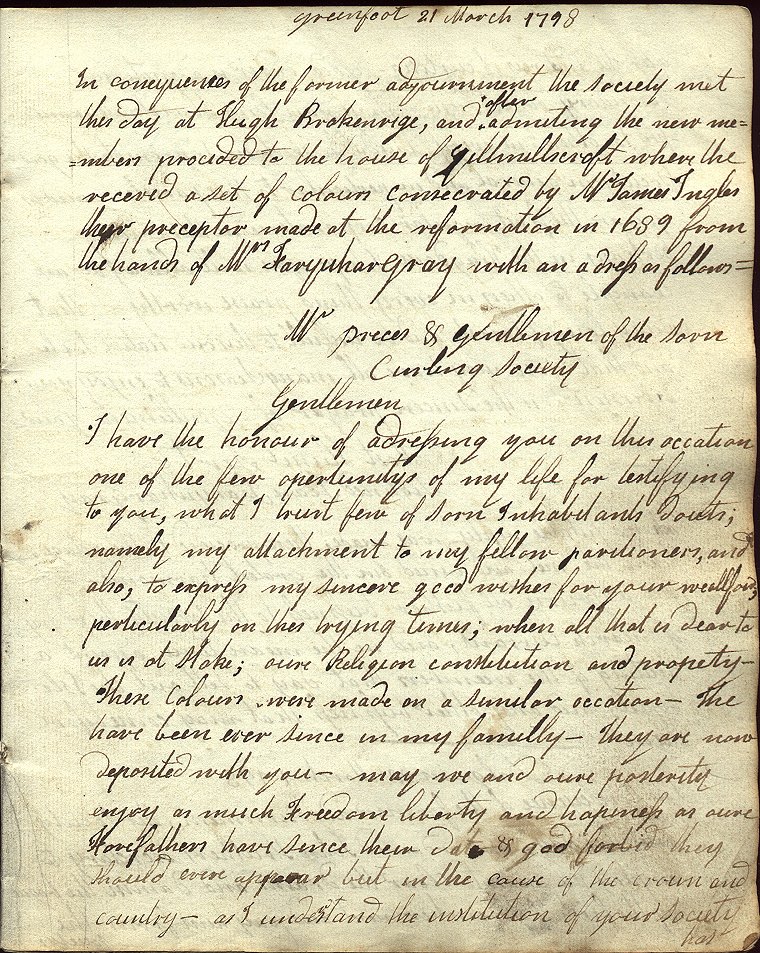 Greenfoot 21 March 1798
In conequences of the former adjournment the society met
this day at Hugh Brokenrige, and after admiting the new me=
=mbers procided to the house of Gillmillscroft where the
receved a set of colours consecrated by Mr James Ingles
their preceptor made at the reformation in 1689 from
the hands of Mrs Farquhar Gray with an adress as follows=
Mr preces & Gentlemen of the Sorn
Curling Society
Gentlemen
I have the honour of adressing you on this occation
one of the few opertunitys of my life for testifying
to you, what I trust few of Sorn Inhabitants douts;
namely my attachment to my fellow paritioners, and
also, to express my sincere good wishes for your wellfair,
perticularly on thes trying times; when all that is dear to
us is at Stake; oure Religion constitution and propety-
These Colours were made on a similar occation- The
have been ever since in my familly- They are now
deposited with you- may we and oure posterity
enjoy as much Freedom liberty and hapiness as oure
Forefathers have since their date & god forbid they
should evre appear but in the cause of the crown and
country- as I understand the institution of your society
has